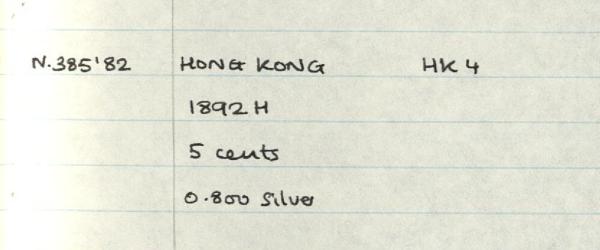 N.385'82 HONG KONG HK 4
1892 H
5 cents
0.800 Silver